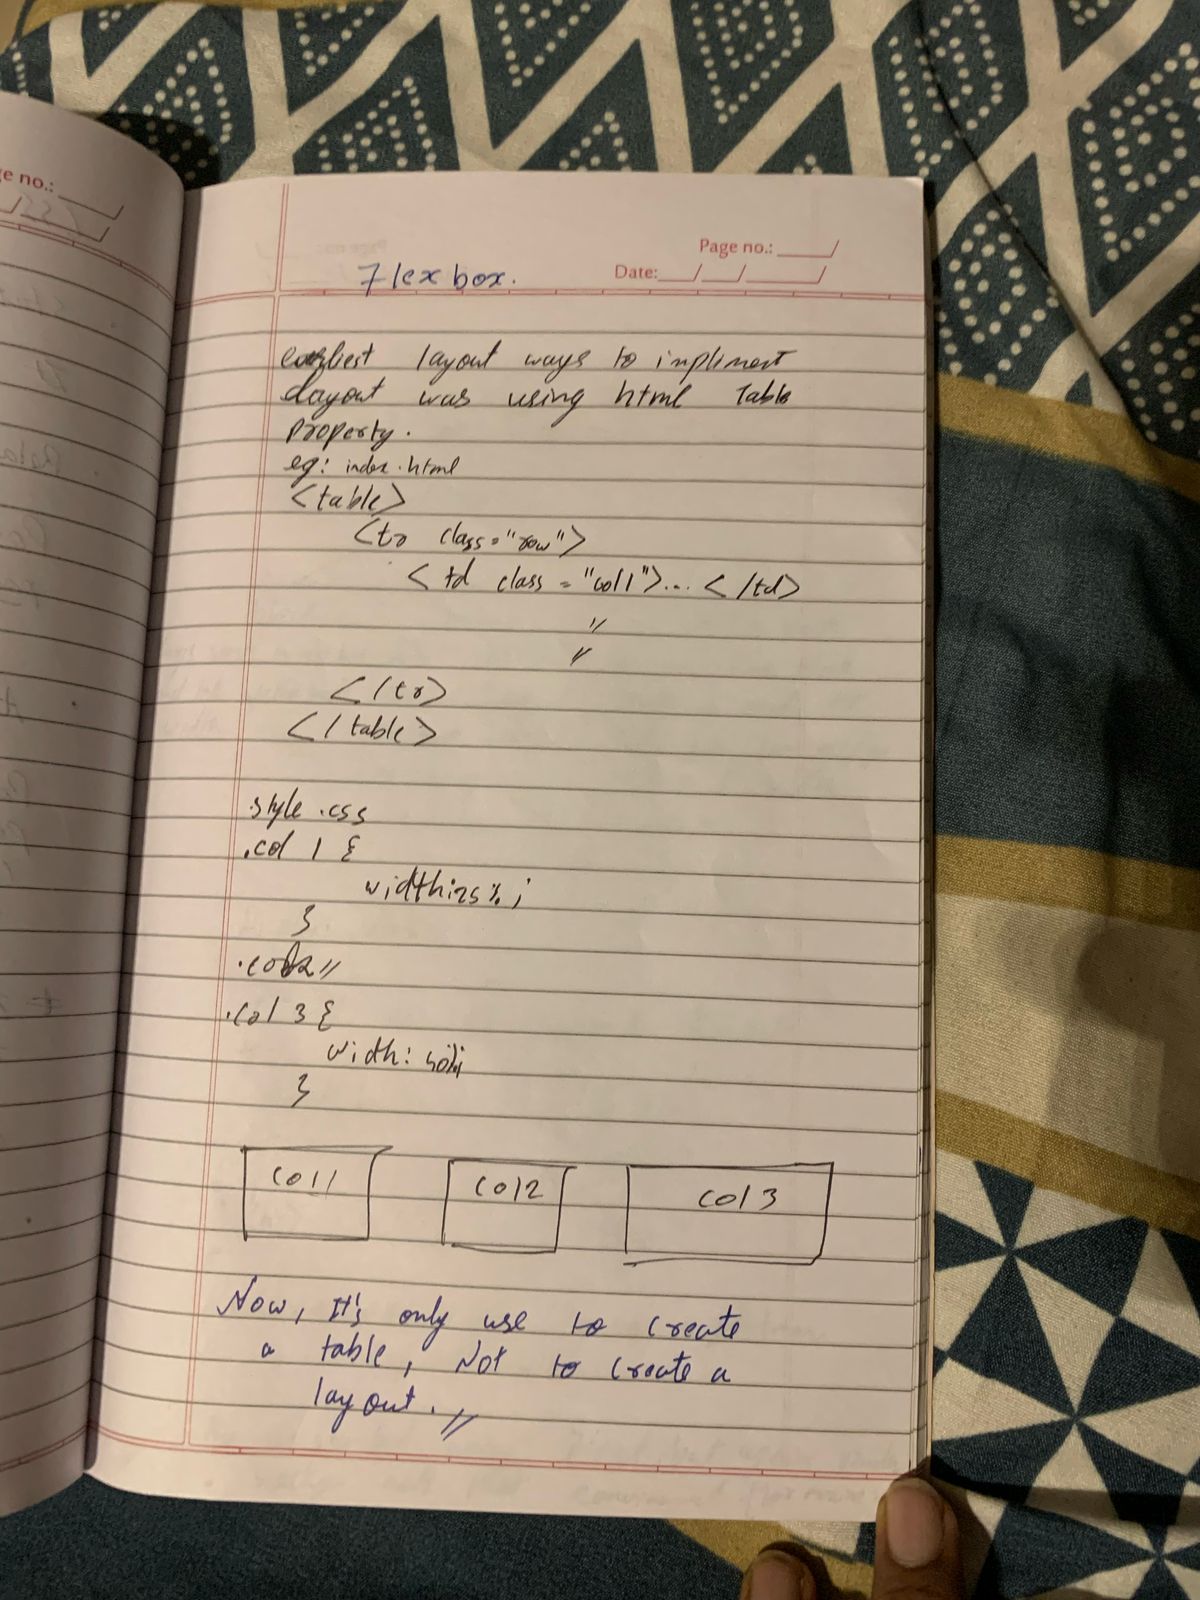 Page no.:
Date: / /
Flexbox.
earliest layout ways to impliment
layout was using html Table
property.
eg: index.html
<table>
<tr class="row">
<td class="col1">... </td>
"
"
</tr>
</table>
style.css
.col 1 {
width:25%;
}
.col2 "
.col 3 {
width: 50%;
}
col1 col2 col3
Now, It's only use to create
a table, Not to create a
layout. //